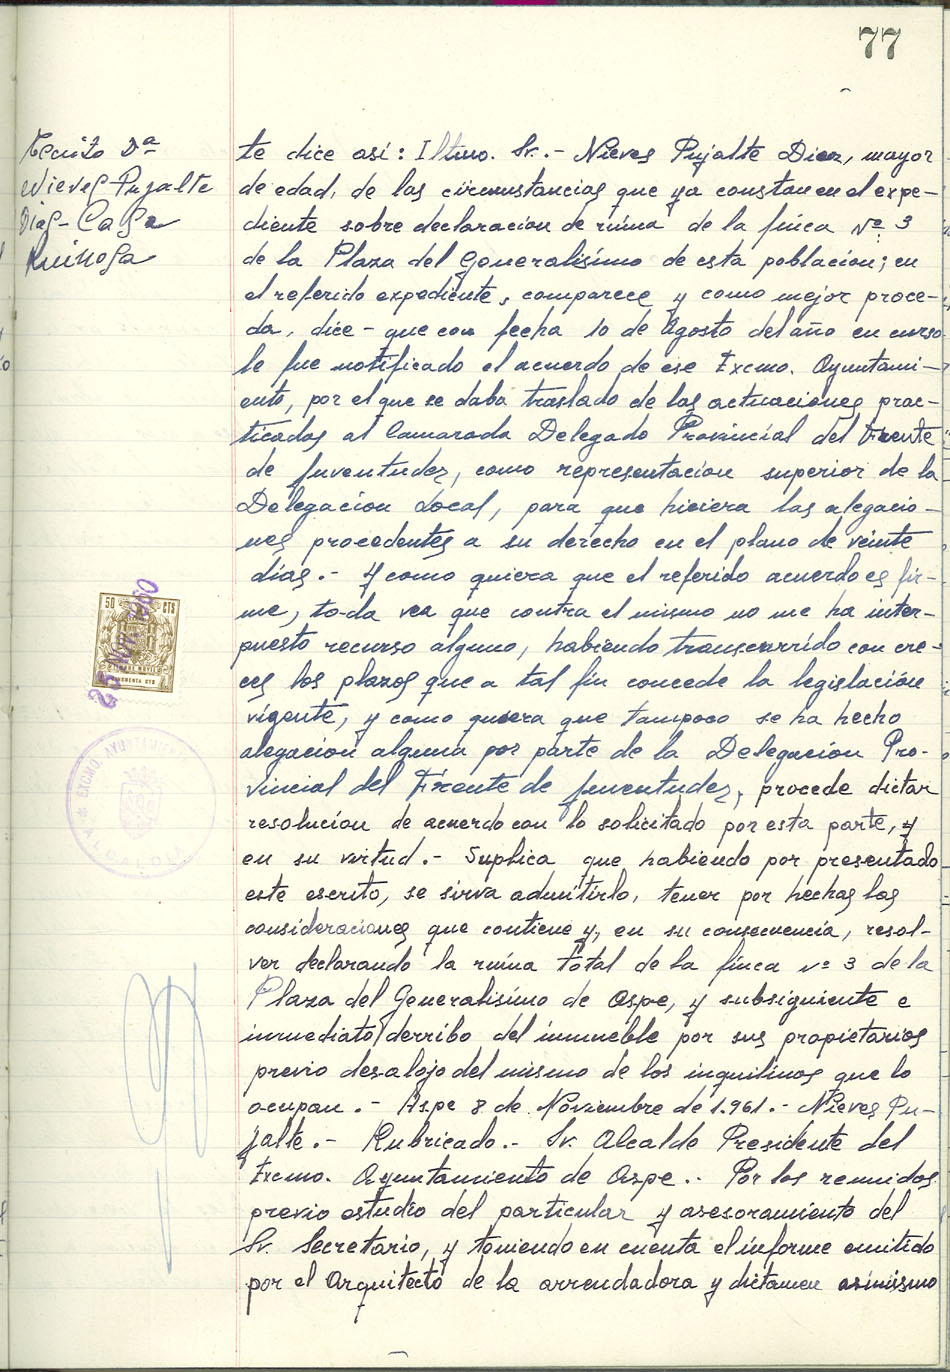 77
Escrito Dª
Nieves Pujalte
Diez- Casa
Ruinosa
te dice así: Iltmo. Sr.- Nieves Pujalte Diez, mayor
de edad, de las circunstancias que ya constan en el expe-
diente sobre declaración de ruina de la finca Nº 3
de la Plaza del Generalísimo de esta población; en
el referido expediente, comparece y como mejor proce-
da, dice - que con fecha 10 de Agosto del año en curso
le fue notificado el acuerdo de ese Excmo. Ayuntami-
ento, por el que se daba traslado de las actuaciones prac-
ticadas al Camarada Delegado Provincial del Frente
de Juventudes, como representacion superior de la
Delegación Local, para que hiciera las alegacio-
nes procedentes a su derecho en el plano de veinte
días.- Y como quiera que el referido acuerdo es fir-
me, toda vea que contra el mismo no me ha inter-
puesto recurso alguno, habiendo transcurrido con cre-
ces los plazos que a tal fin concede la legislación
vigente, y como quiera que tampoco se ha hecho
alegación alguna por parte de la Delegación Pro-
vincial del Frente de Juventudes, procede dictar
resolución de acuerdo con lo solicitado por esta parte, y
en su virtud.- Suplica que habiendo por presentado
este escrito, se sirva admitirlo, tener por hechas las
consideraciones que contiene y, en su consecuencia, resol-
ver declarando la ruina total de la finca nº 3 de la
Plaza del Generalísimo de Aspe, y subsiguiente e
inmediato derribo del inmueble por sus propietarios
previo desalojo del mismo de los inquilinos que lo
ocupan.- Aspe 8 de Noviembre de 1.961.- Nieves Pu-
jalte.- Rubricado.- Sr. Alcalde Presidente del
Excmo. Ayuntamiento de Aspe.. Por los reunidos
previo estudio del particular y asesoramiento del
Sr. Secretario, y teniendo en cuenta el informe emitido
por el Arquitecto de la arrendadora y dictamen asimismo
50 CTS
25 NOV. 1960
CINCUENTA CTS
EXCMO. AYUNTAMIENTO
ALCALDIA